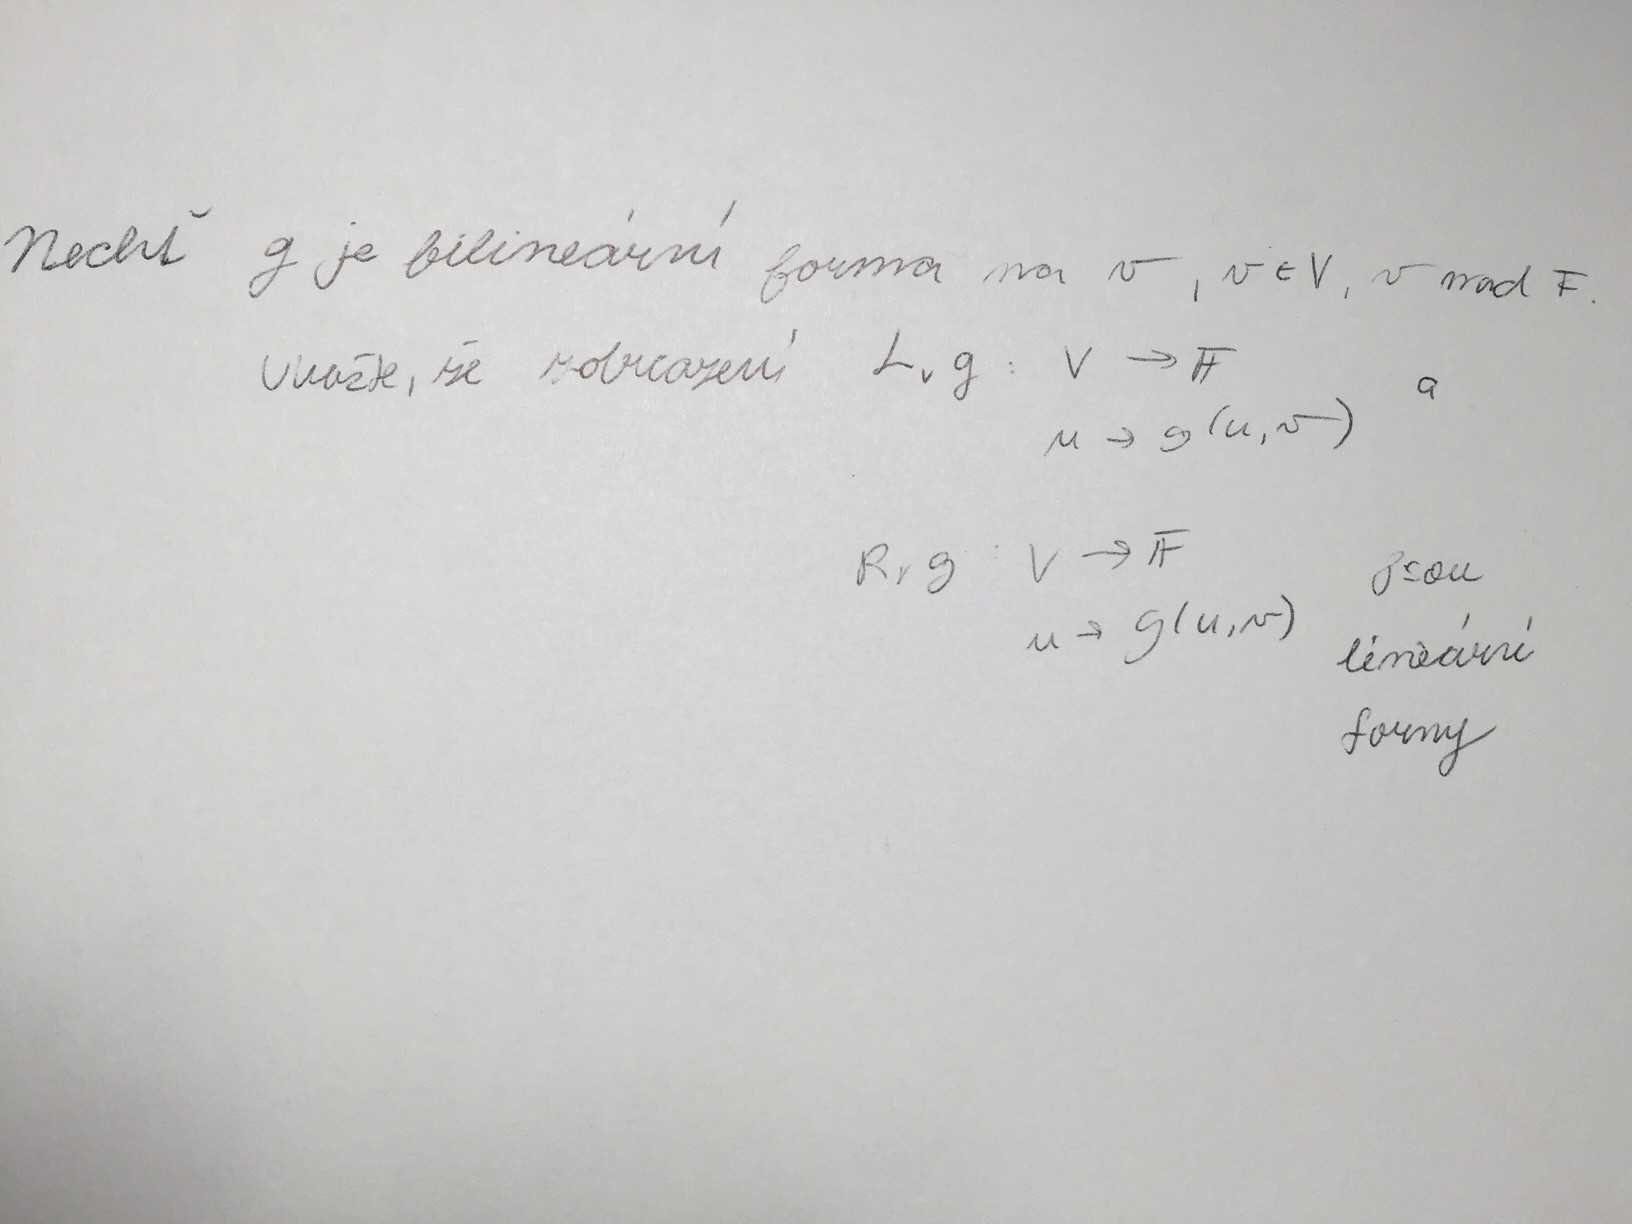 Nechť g je bilineární forma na V, v ∈ V, V nad F.
Ukažte, že zobrazení L_v g : V → F
u → g(u, v) a
R_v g : V → F jsou
u → g(u, v) lineární
formy